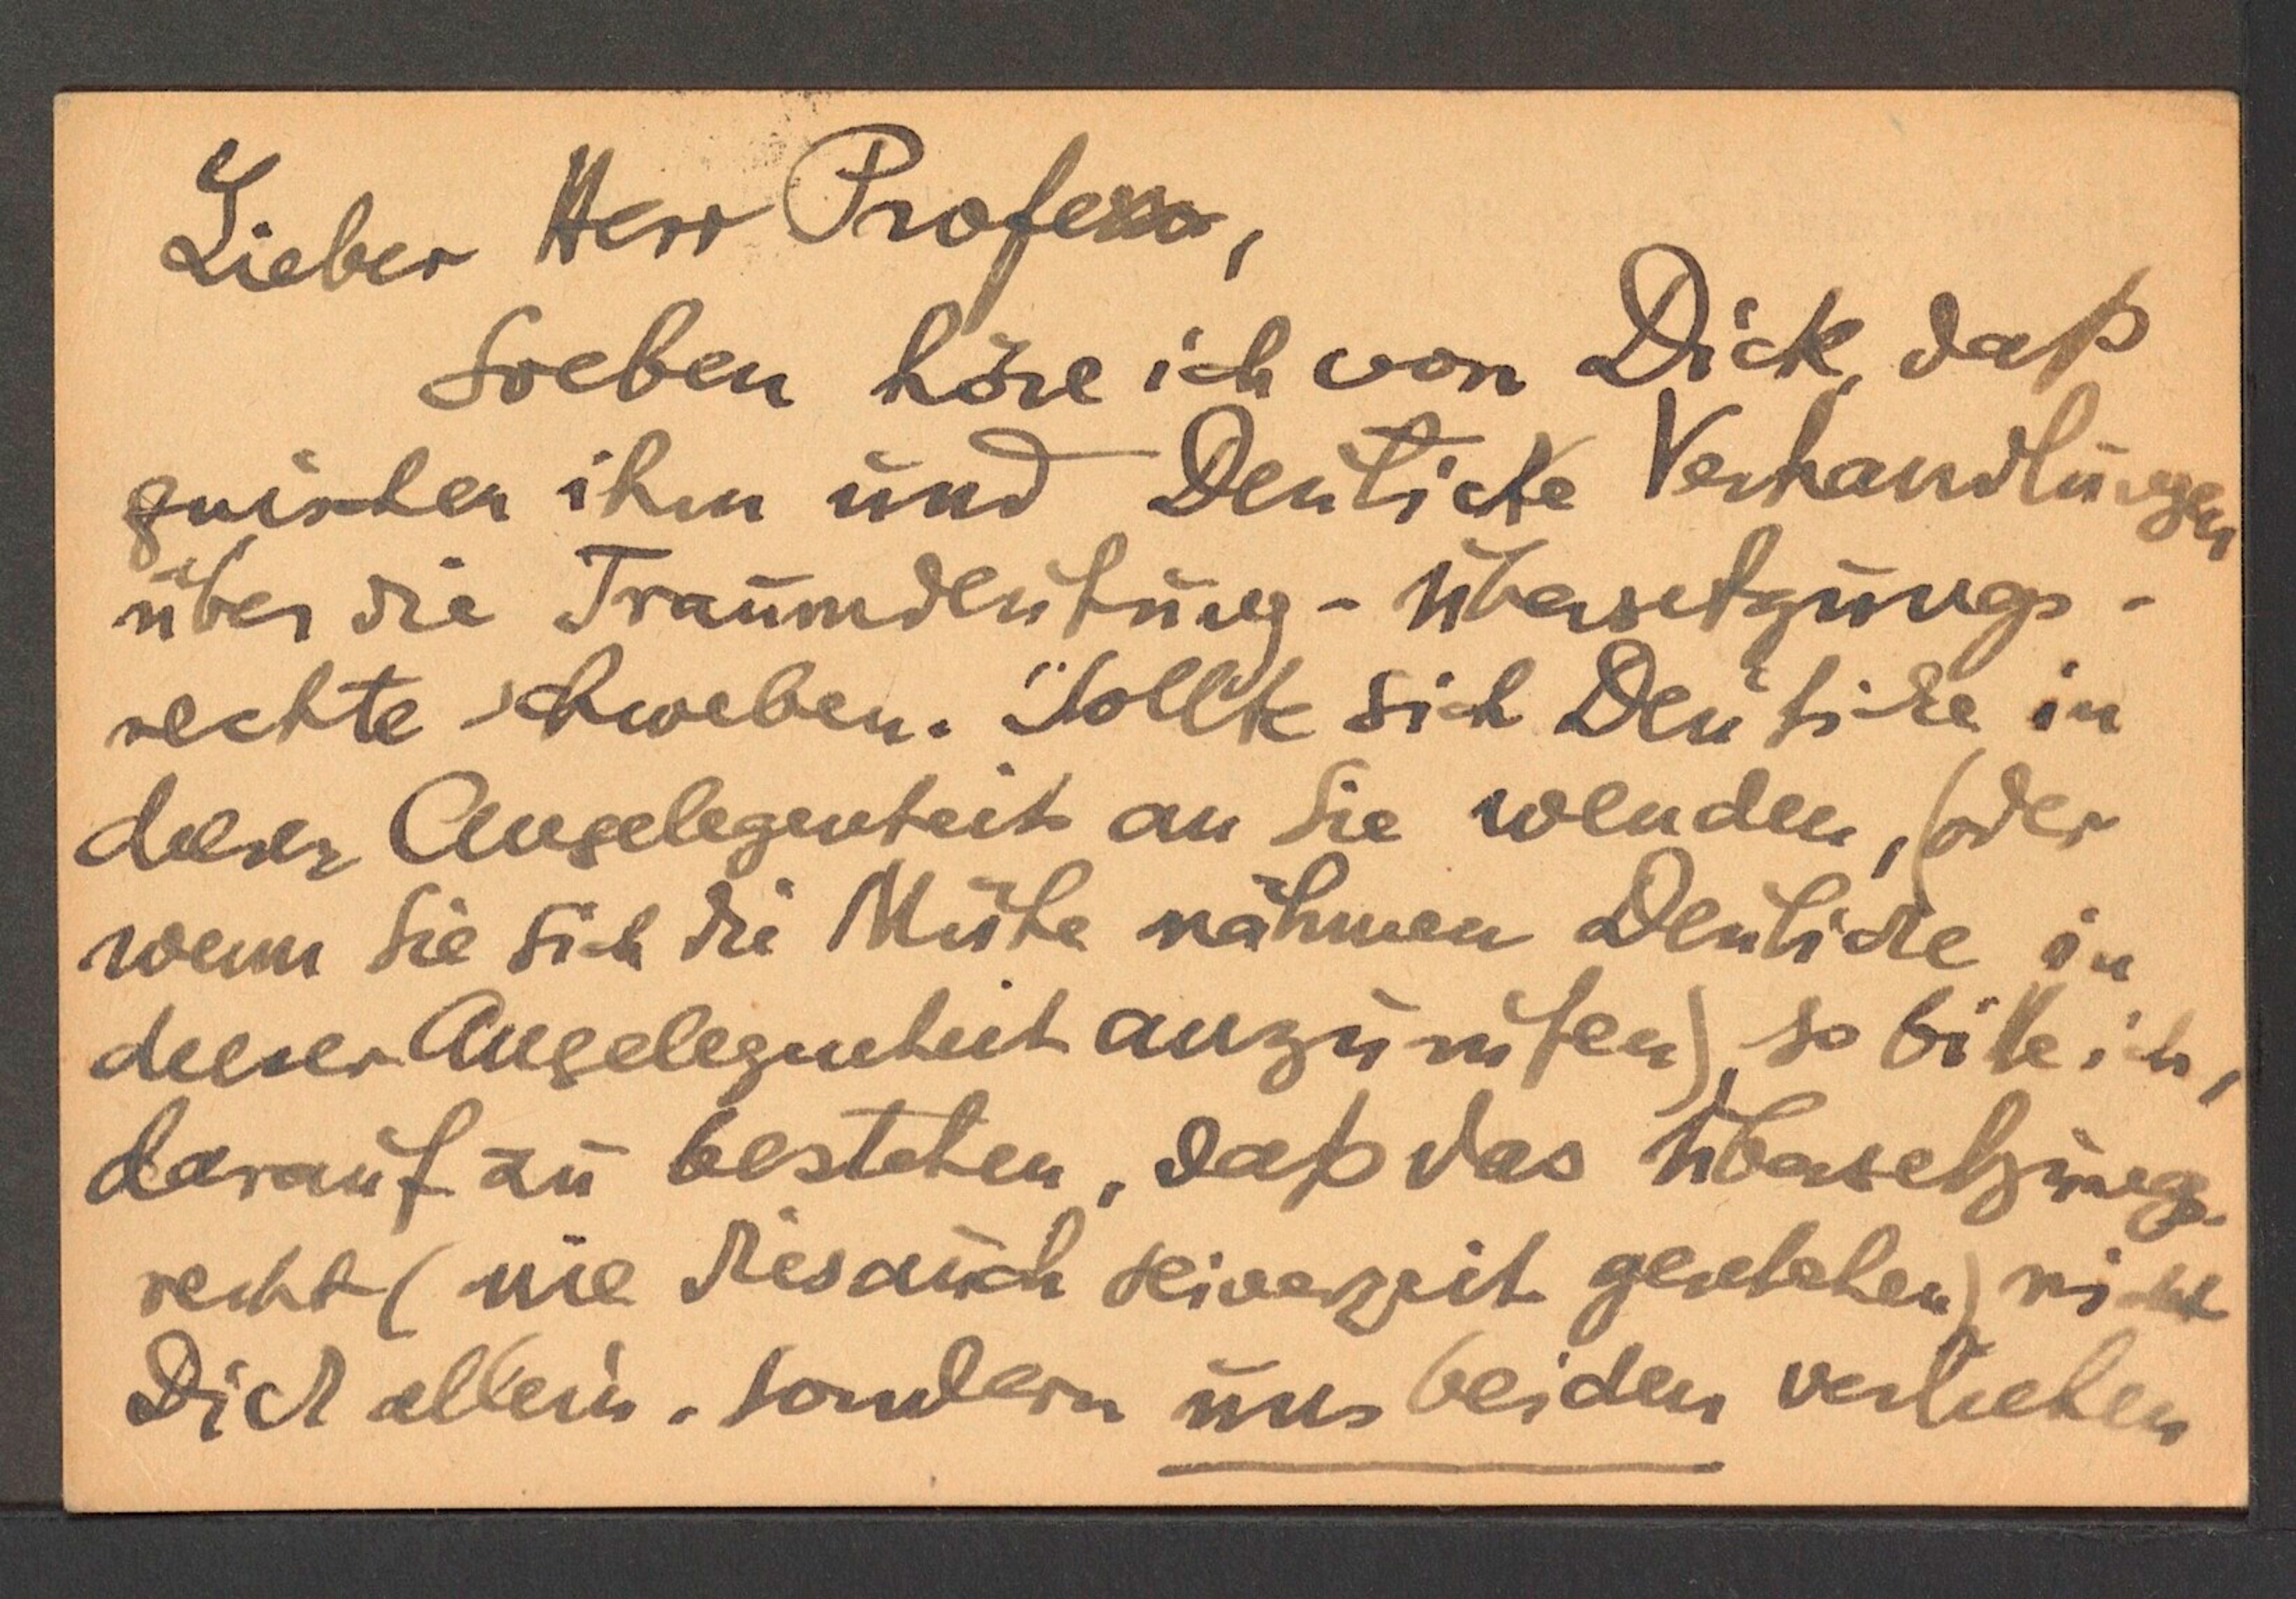 Lieber Herr Professor,
Soeben höre ich von Dick, daß
zwischen ihm und Deuticke Verhandlungen
über die Traumdeutung-Übersetzungs-
rechte schweben. Sollte sich Deuticke in
dieser Angelegenheit an Sie wenden, (oder
wenn Sie sich die Mühe nähmen Deuticke in
dieser Angelegenheit anzurufen), so bitte ich,
darauf zu bestehen, daß das Übersetzungs-
recht (wie dies auch seinerzeit geschehen) nicht
Dick allein, sondern uns beiden verliehen